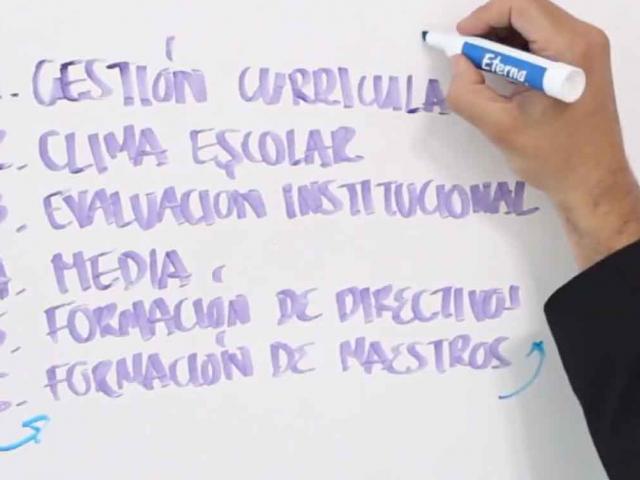 GESTIÓN CURRICULA
CLIMA ESCOLAR
3. EVALUACION INSTITUCIONAL
4. MEDIA
5. FORMACIÓN DE DIRECTIVOS
FORMACIÓN DE MAESTROS
Eterna